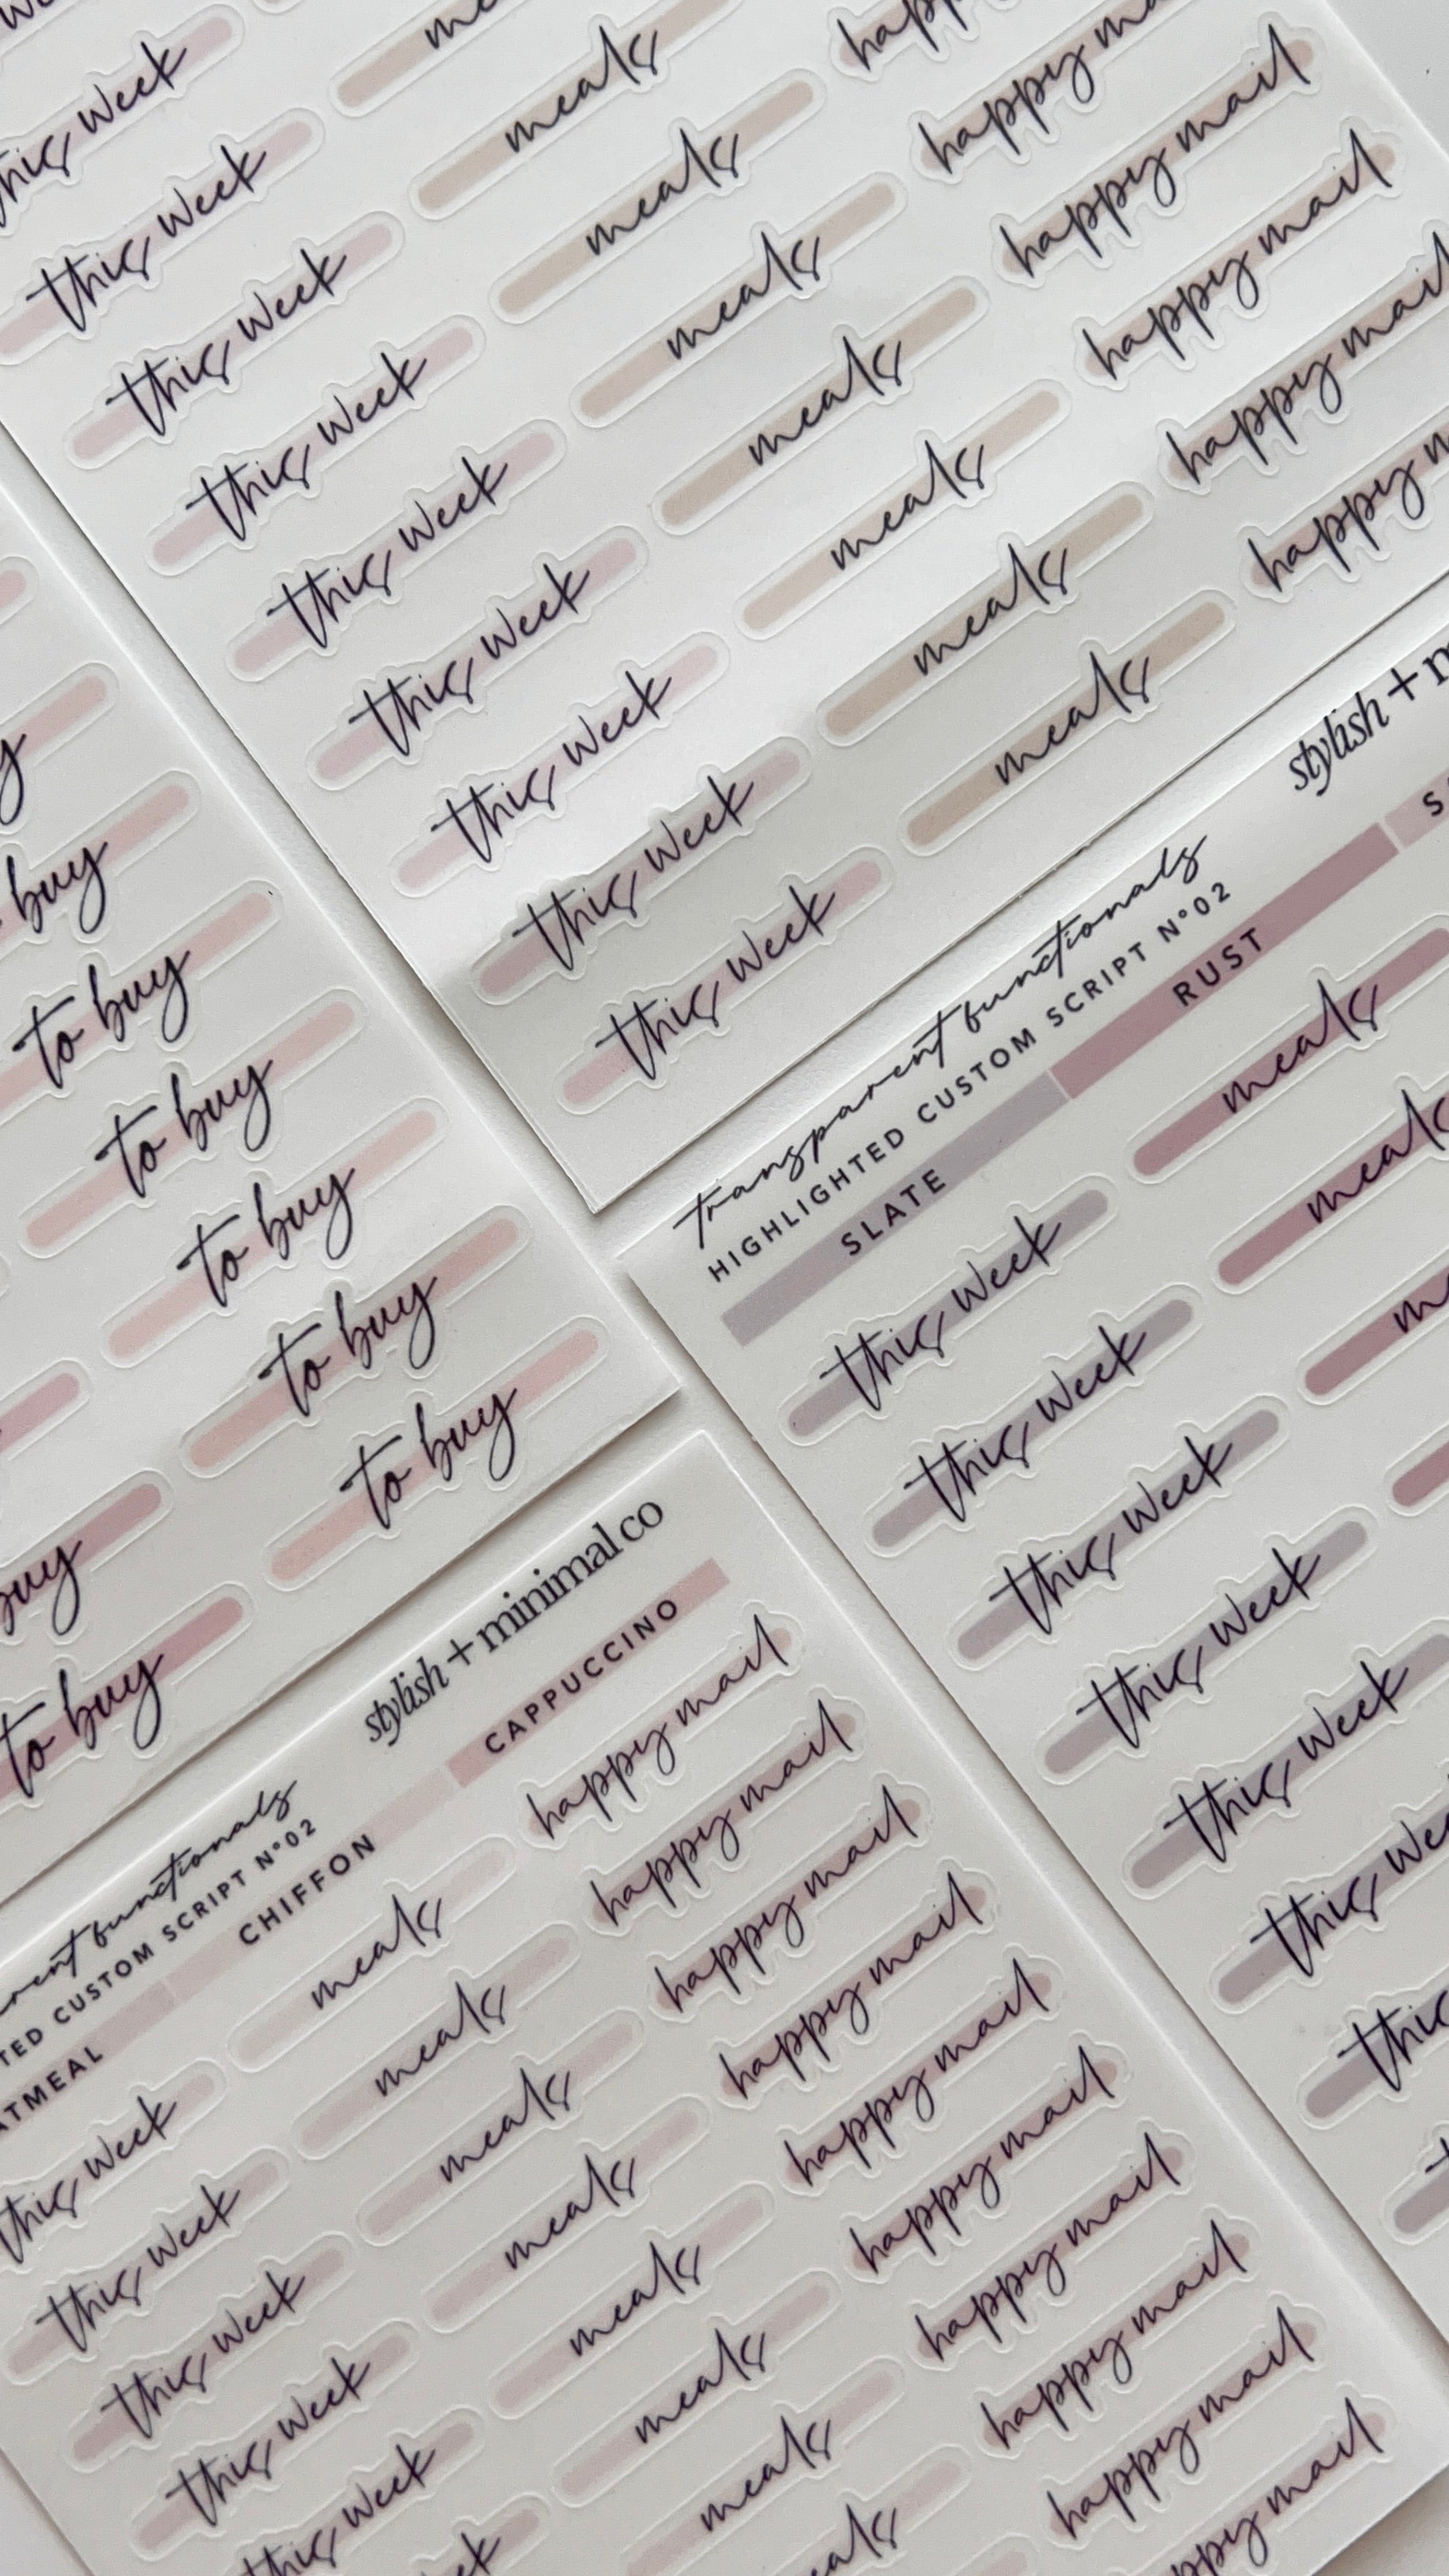 this Week
this Week
this Week
this Week
this Week
this Week
this Week
this Week
this Week
meals
meals
meals
meals
meals
meals
meals
happy
happy
happy mail
happy mail
happy mail
happy
buy
to buy
to buy
to buy
to buy
to buy
buy
to buy
stylish +
transparent functionals
HIGHLIGHTED CUSTOM SCRIPT N°02
SLATE RUST
this Week
this Week
this Week
this Week
this Week
this
this
meals
meals
stylish + minimal co
functionals
CUSTOM SCRIPT N°02
CHIFFON CAPPUCCINO
this Week
this Week
this Week
this Week
this Week
meals
meals
meals
meals
meals
meals
meals
happy mail
happy mail
happy mail
happy mail
happy mail
happy mail
happy mail
happy mail
happy mail
mail